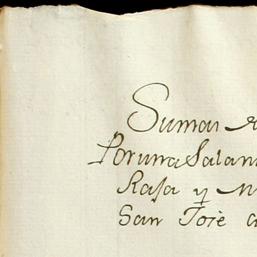 Sumar
Poruna Salam
Rasa y
San Jose a